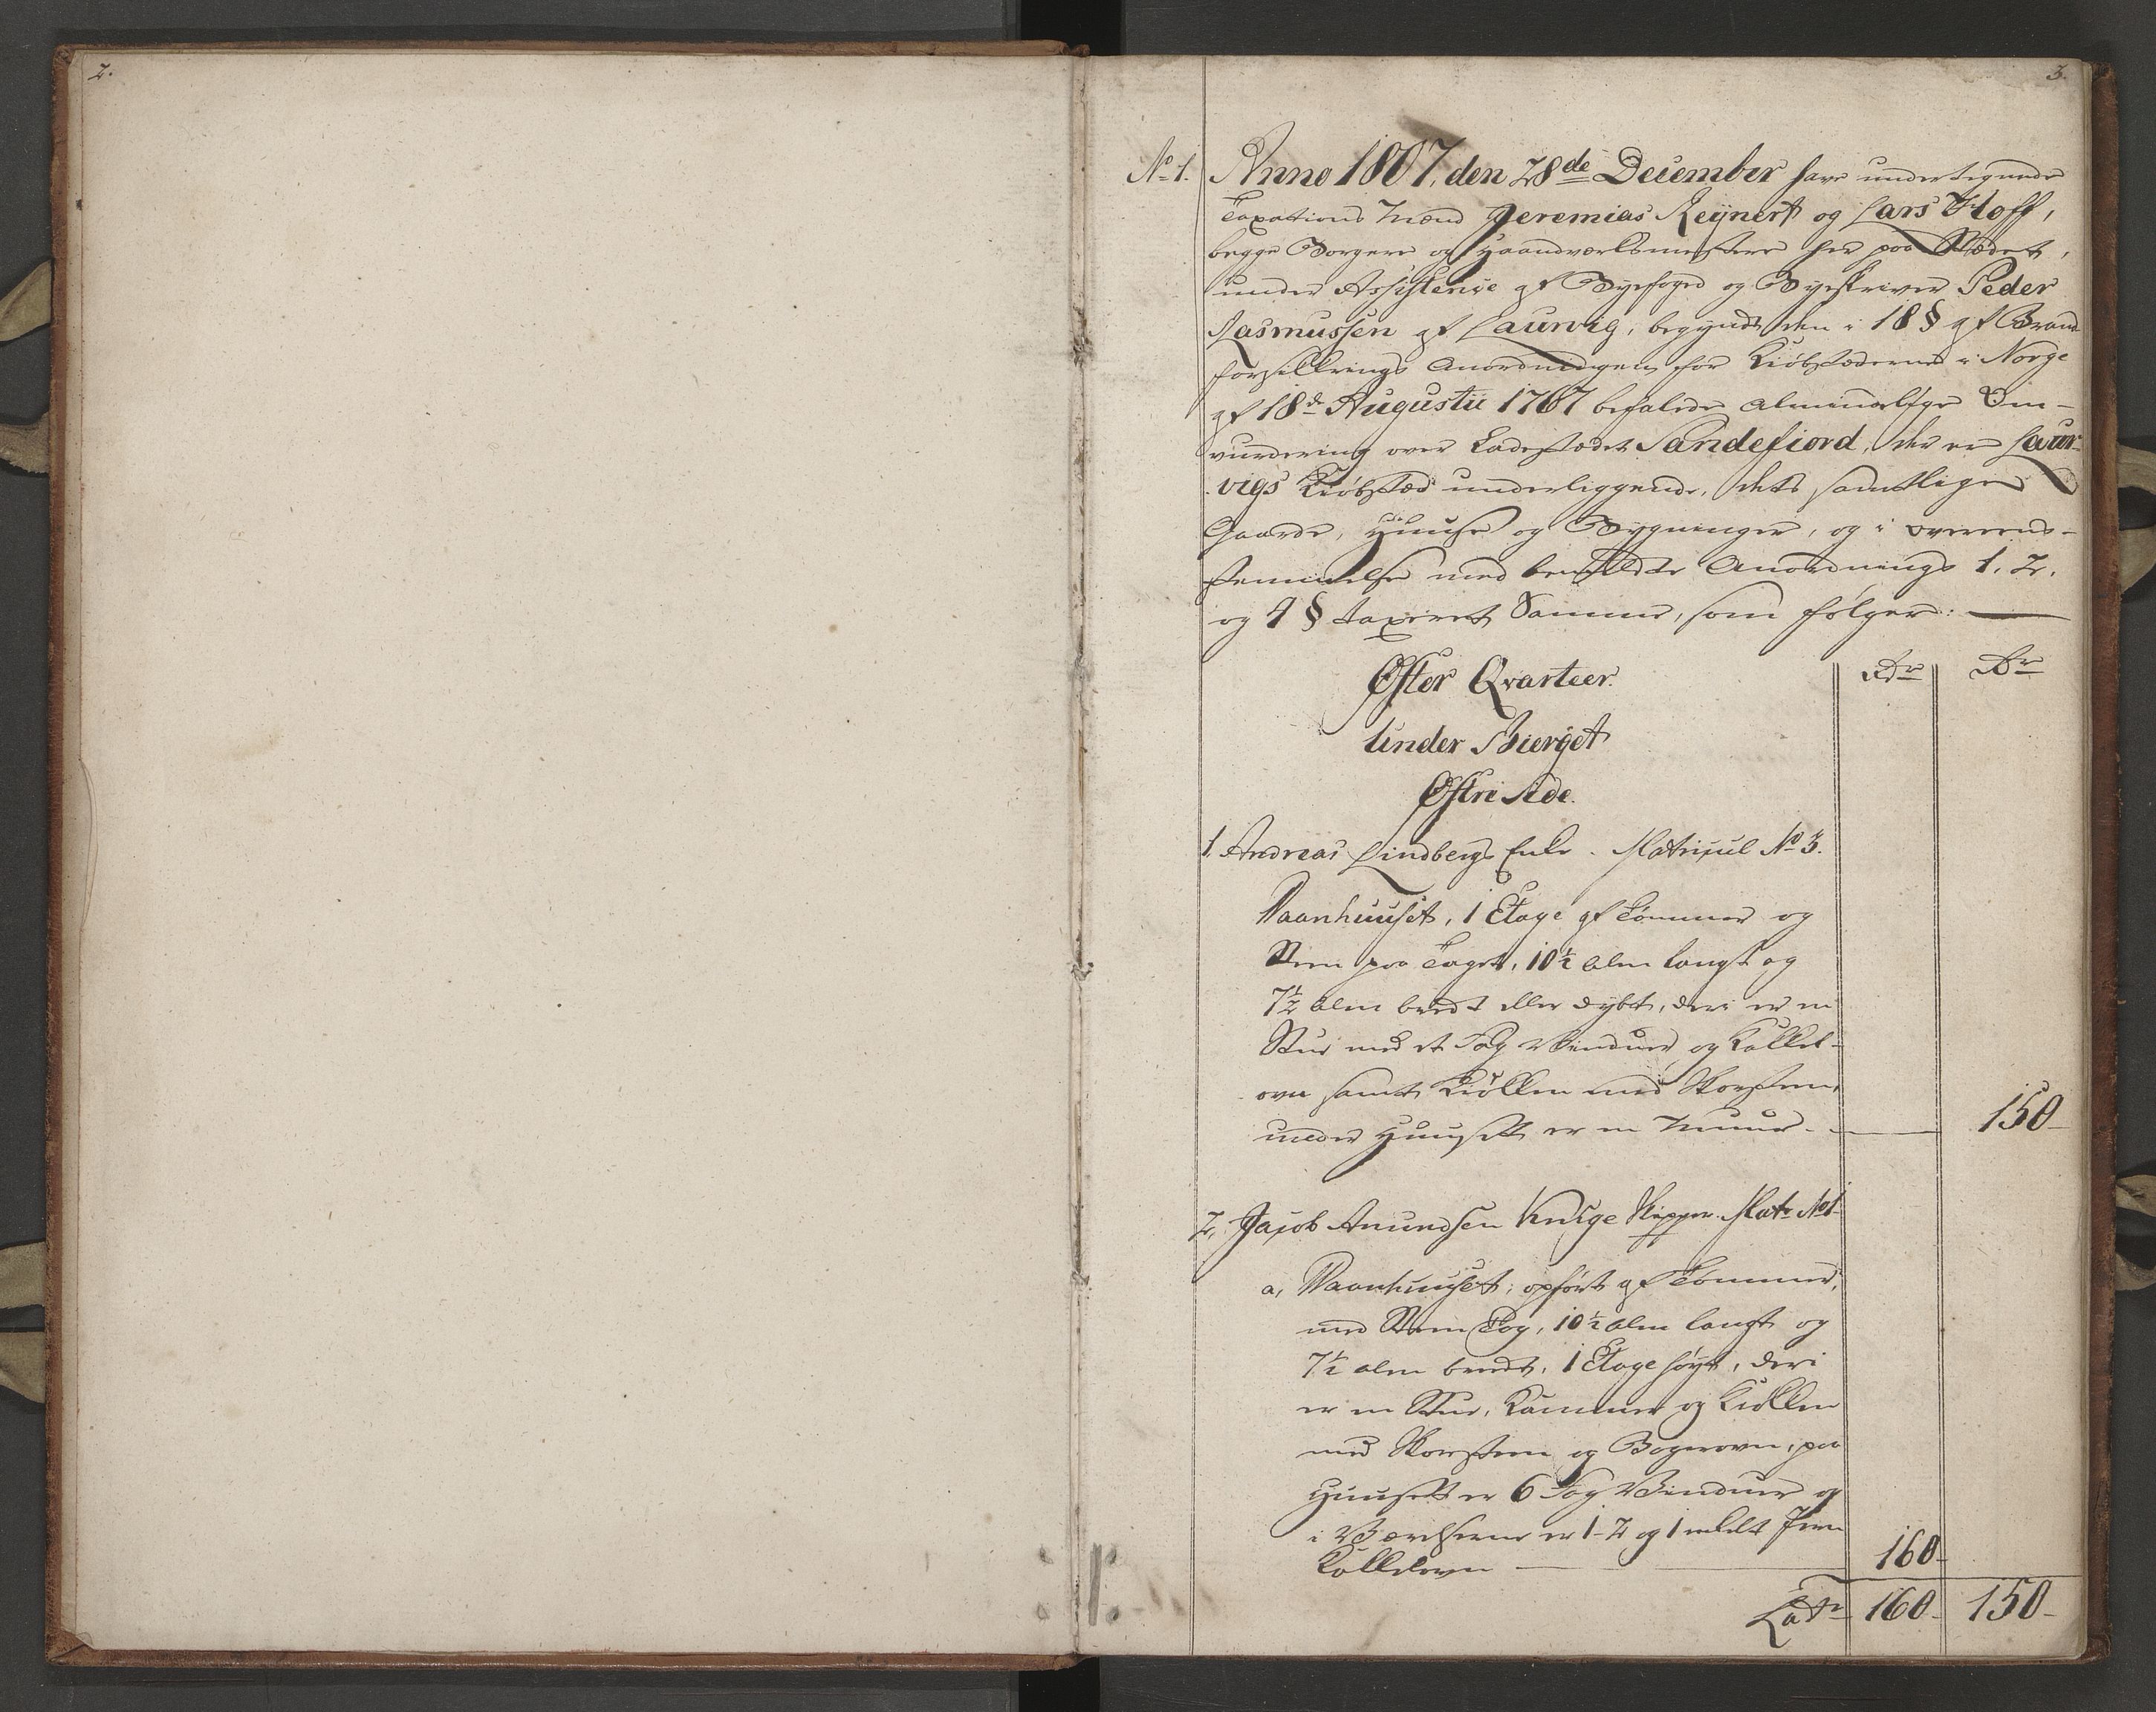 2.
3.
No 1. Anno 1807, den 28de December have undertegnede
Taxations Mænd Jeremias Reijnert og Lars Hoff,
begge Borgere og Haandværksmestere her paa Stædet,
under Assistence af Byefoged og Byeskriver Peder
Rasmussen af Laurvig, begyndt den i 18 § af Brand
forsikkrings Anordningen for Kiøbstæderne i Norge
af 18de Augustii 1767 befalede almindelige Om-
vurdering over Ladestædet Sandefiord, der er Laur-
vigs Kiøbstæd underliggende, dets samtlige
Gaarde, Huuse og Bygninger, og i overeens-
stemmelse med bemeldte Anordnings 1. 2.
og 4 § taxeret Samme, som følger:
Øster Qvarteer. Rdr Rdr
Under Bierget
Østre Side.
1. Andreas Lindbergs Enke. Matricul No 3.
Vaanhuuset, 1 Etage af Tømmer og
Steen paa Taget, 10½ Alen langt og
7½ Alen bredt eller dybt, deri er en
Stue med et Fag Vinduer og Kakkel-
ovn samt Kiøkken med Skorsteen,
under Huuset er en Muur. 150
2, Jacob Amundsen Virige Skipper. Matr No 1
a, Vaanhuuset, opført af Tømmer,
med Steen Tag, 10½ Alen langt og
7½ Alen bredt, 1 Etage høyt, deri
er en Stue, Kammer og Kiøkken
med Skorsteen og Bagerovn, paa
Huuset er 6 Fag Vinduer og
i Værelserne er 1-2 og 1 enkelt Jern
Kakkelovn 160
Latr 160 150